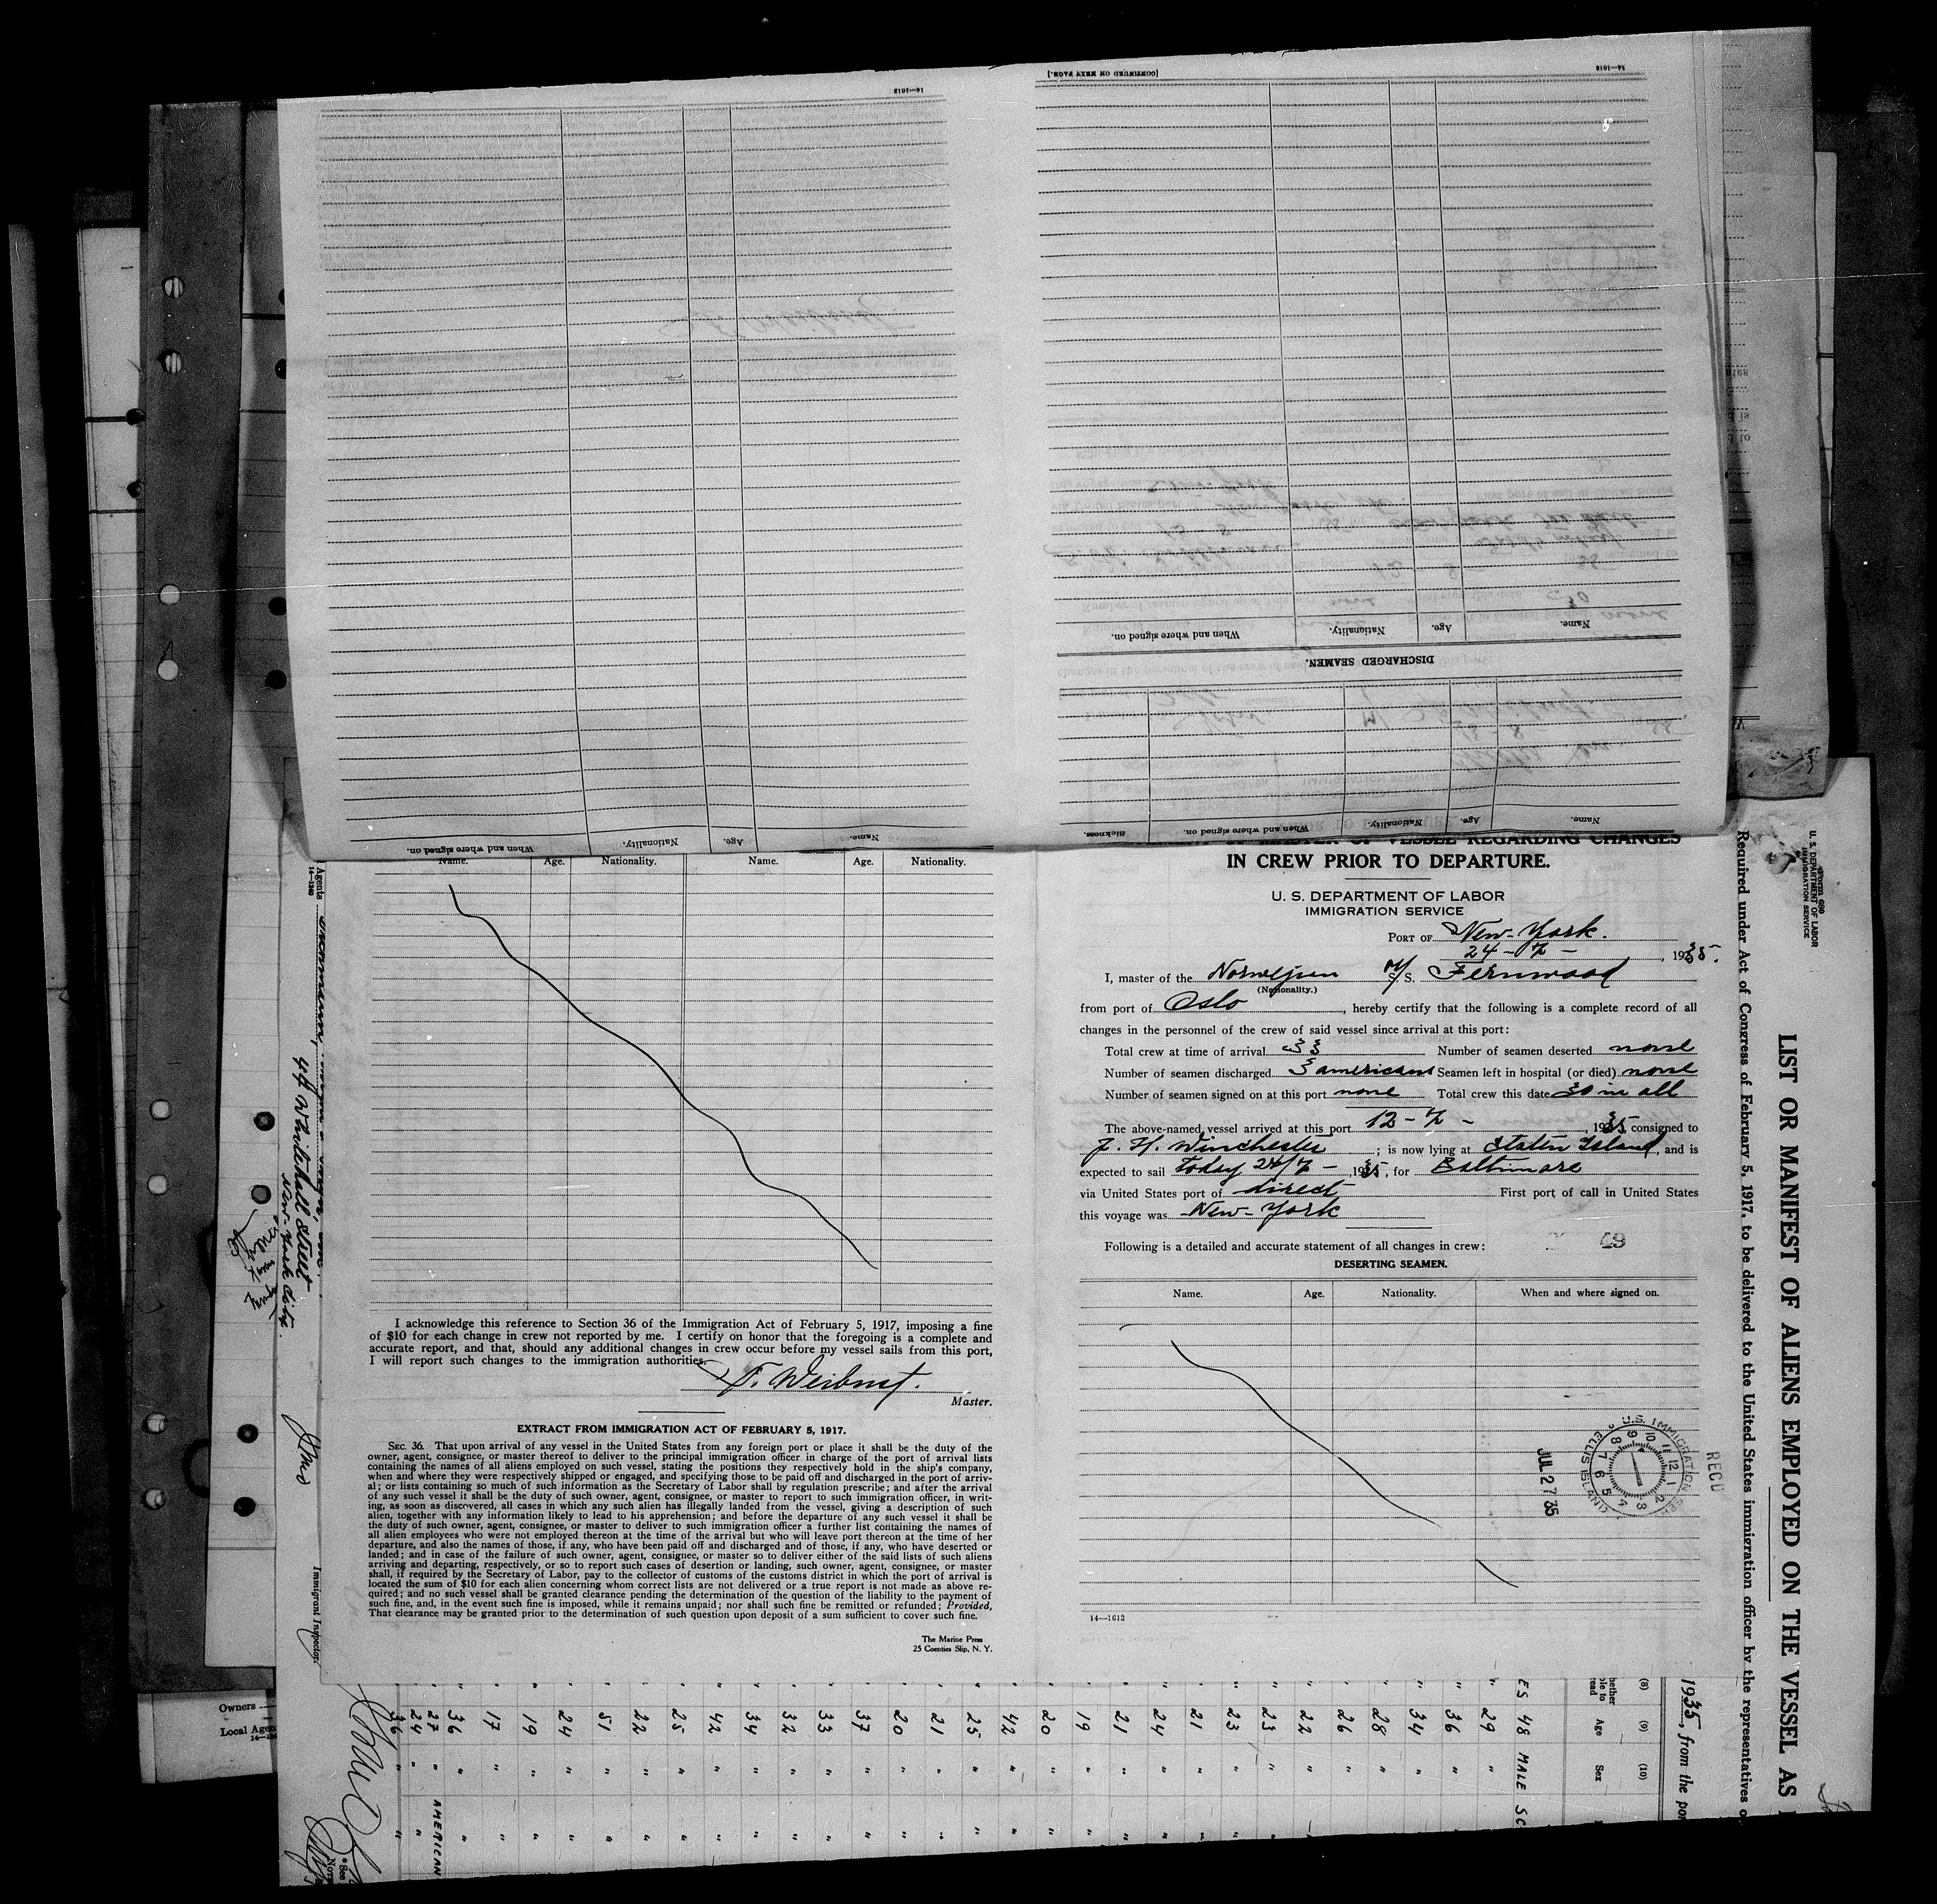 [CONTINUED ON NEXT PAGE.]
14—1613
14—1613
When and where signed on.
Nationality.
Age.
Name.
DISCHARGED SEAMEN.
Sickness.
When and where signed on.
Nationality.
Age.
Name.
When and where signed on.
Nationality.
Age.
Name.
Name.
Age.
Nationality.
Name.
Age.
Nationality.
I acknowledge this reference to Section 36 of the Immigration Act of February 5, 1917, imposing a fine
of $10 for each change in crew not reported by me. I certify on honor that the foregoing is a complete and
accurate report, and that, should any additional changes in crew occur before my vessel sails from this port,
I will report such changes to the immigration authorities.
Master.
EXTRACT FROM IMMIGRATION ACT OF FEBRUARY 5, 1917.
SEC. 36. That upon arrival of any vessel in the United States from any foreign port or place it shall be the duty of the
owner, agent, consignee, or master thereof to deliver to the principal immigration officer in charge of the port of arrival lists
containing the names of all aliens employed on such vessel, stating the positions they respectively hold in the ship's company,
when and where they were respectively shipped or engaged, and specifying those to be paid off and discharged in the port of arriv-
al; or lists containing so much of such information as the Secretary of Labor shall by regulation prescribe; and after the arrival
of any such vessel it shall be the duty of such owner, agent, consignee, or master to report to such immigration officer, in writ-
ing, as soon as discovered, all cases in which any such alien has illegally landed from the vessel, giving a description of such
alien, together with any information likely to lead to his apprehension; and before the departure of any such vessel it shall be
the duty of such owner, agent, consignee, or master to deliver to such immigration officer a further list containing the names of
all alien employees who were not employed thereon at the time of the arrival but who will leave port thereon at the time of her
departure, and also the names of those, if any, who have been paid off and discharged and of those, if any, who have deserted or
landed; and in case of the failure of such owner, agent, consignee, or master so to deliver either of the said lists of such aliens
arriving and departing, respectively, or so to report such cases of desertion or landing, such owner, agent, consignee, or master
shall, if required by the Secretary of Labor, pay to the collector of customs of the customs district in which the port of arrival is
located the sum of $10 for each alien concerning whom correct lists are not delivered or a true report is not made as above re-
quired; and no such vessel shall be granted clearance pending the determination of the question of the liability to the payment of
such fine, and, in the event such fine is imposed, while it remains unpaid; nor shall such fine be remitted or refunded; Provided,
That clearance may be granted prior to the determination of such question upon deposit of a sum sufficient to cover such fine.
The Marine Press
25 Coenties Slip, N. Y.
OF VESSEL REGARDING CHANGES
IN CREW PRIOR TO DEPARTURE.
U. S. DEPARTMENT OF LABOR
IMMIGRATION SERVICE
PORT OF New-York.
24-7-, 1935.
I, master of the Norwegian M/S. Fernwood
(Nationality.)
from port of Oslo, hereby certify that the following is a complete record of all
changes in the personnel of the crew of said vessel since arrival at this port:
Total crew at time of arrival 33 Number of seamen deserted none
Number of seamen discharged 3 americans Seamen left in hospital (or died) none
Number of seamen signed on at this port none Total crew this date 30 in all
The above-named vessel arrived at this port 12-7-, 1935, consigned to
J. H. Winchester; is now lying at Staten Island, and is
expected to sail today 24/7- 1935, for Baltimore
via United States port of direct First port of call in United States
this voyage was New-York
Following is a detailed and accurate statement of all changes in crew: 49
DESERTING SEAMEN.
Name.
Age.
Nationality.
When and where signed on.
14—1613
RECD
U.S. IMMIGRATION SER
ELLIS ISLAND
JUL 27 35
Form 680
U. S. DEPARTMENT OF LABOR
IMMIGRATION SERVICE
LIST OR MANIFEST OF ALIENS EMPLOYED ON THE VESSEL AS
Required under Act of Congress of February 5, 1917, to be delivered to the United States immigration officer by the representatives
1935, from the por
(8)
(9)
(10)
Age
Sex
ES 48 MALE SC
29 "
36 "
34 "
28 "
26 "
22 "
23 "
23 "
21 "
24 "
21 "
19 "
20 "
42 "
25 "
21 "
20 "
37 "
33 "
32 "
34 "
42 "
25 "
22 "
51 "
24 "
19 "
17 "
36 "
27 " AMERICAN
24 "
36 "
Agents
14—1240
44 Whitehall Street
New-York City.
Immigrant Inspector.
Owners
Local Agen